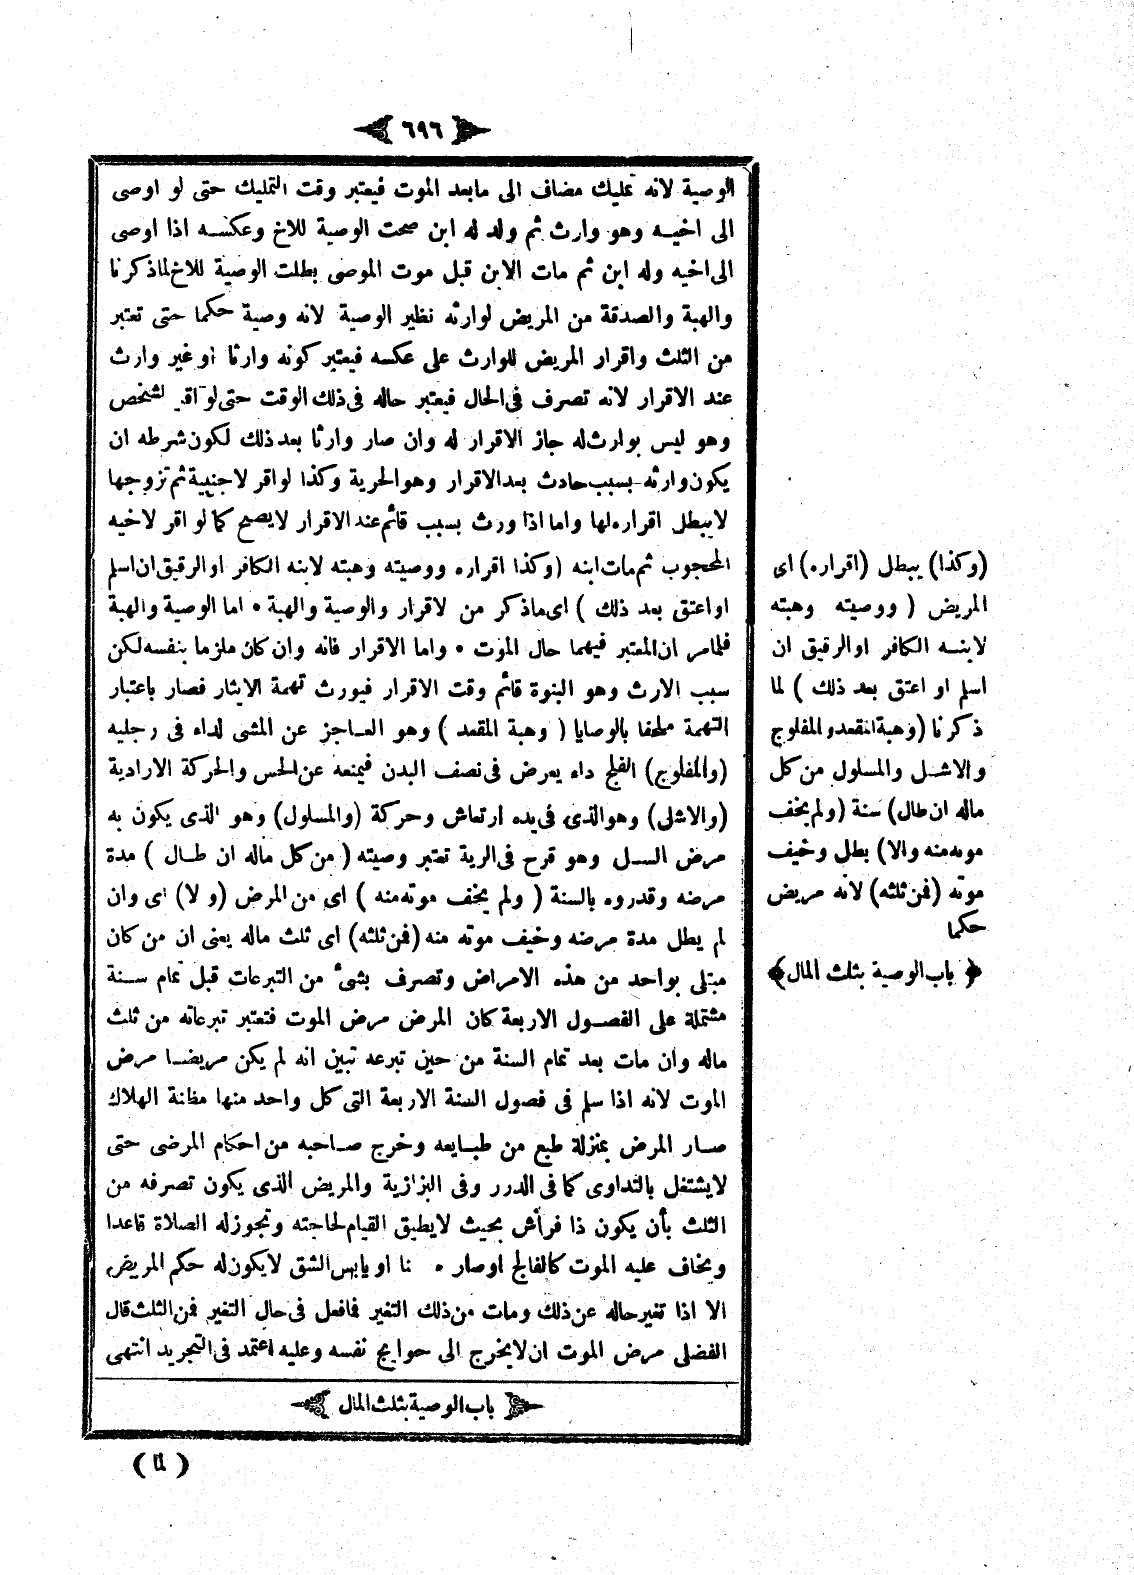 ٦٩٦
الوصية لانه تمليك مضاف الى مابعد الموت فيعتبر وقت التمليك حتى لو اوصى
الى اخيه وهو وارث ثم ولد له ابن صحت الوصية للاخ وعكسه اذا اوصى
الى اخيه وله ابن ثم مات الابن قبل موت الموصى بطلت الوصية للاخ لماذكرنا
والهبة والصدقة من المريض لوارثه نظير الوصية لانه وصية حكما حتى تعتبر
من الثلث واقرار المريض للوارث على عكسه فيعتبر كونه وارثا او غير وارث
عند الاقرار لانه تصرف فى الحال فيعتبر حاله فى ذلك الوقت حتى لو اقر لشخص
وهو ليس بوارث له جاز الاقرار له وان صار وارثا بعد ذلك لكون شرطه ان
يكون وارثه بسبب حادث بعد الاقرار وهو الحرية وكذا لو اقر لاجنبية ثم تزوجها
لايبطل اقراره لها واما اذا ورث بسبب قائم عند الاقرار لايصح كما لو اقر لاخيه
المحجوب ثم مات ابنه (وكذا اقراره ووصيته وهبته لابنه الكافر اوالرقيق ان اسلم
او اعتق بعد ذلك ) اى ماذكر من لاقرار والوصية والهبة • اما الوصية والهبة
فلمامر ان المعتبر فيهما حال الموت • واما الاقرار فانه وان كان ملزما بنفسه لكن
سبب الارث وهو البنوة قائم وقت الاقرار فيورث تهمة الايثار فصار باعتبار
التهمة ملحقا بالوصايا ( وهبة المقعد ) وهو العاجز عن المشى لداء فى رجليه
(والمفلوج) الفلج داء يعرض فى نصف البدن فيمنعه عن الحس والحركة الارادية
(والاشلى) وهو الذى فى يده ارتعاش وحركة (والمسلول) وهو الذى يكون به
مرض السل وهو قرح فى الرية تعتبر وصيته ( من كل ماله ان طال ) مدة
مرضه وقدروه بالسنة ( ولم يخف موته منه ) اى من المرض (و لا) اى وان
لم يطل مدة مرضه وخيف موته منه (فمن ثلثه) اى ثلث ماله يعنى ان من كان
مبتلى بواحد من هذه الامراض وتصرف بشئ من التبرعات قبل تمام سنة
مشتملة على الفصول الاربعة كان المرض مرض الموت فتعتبر تبرعاته من ثلث
ماله وان مات بعد تمام السنة من حين تبرعه تبين انه لم يكن مريضا مرض
الموت لانه اذا سلم فى فصول السنة الاربعة التى كل واحد منها مظانة الهلاك
صار المرض بمنزلة طبع من طبايعه وخرج صاحبه من احكام المرضى حتى
لايشتغل بالتداوى كما فى الدرر وفى البزازية والمريض الذى يكون تصرفه من
الثلث بأن يكون ذا فرأش بحيث لايطيق القيام لحاجته وتجوزله الصلاة قاعدا
ويخاف عليه الموت كالفالج اوصار نا او يابس الشق لايكون له حكم المريض
الا اذا تغير حاله عن ذلك ومات من ذلك التغير فافعل فى حال التغير فمن الثلث قال
الفضلى مرض الموت ان لايخرج الى حوايج نفسه وعليه اعتمد فى التجريد انتهى
باب الوصية بثلث المال
( لما )
(وكذا) يبطل (اقراره) اى
المريض ( ووصيته وهبته
لابنه الكافر اوالرقيق ان
اسلم او اعتق بعد ذلك ) لما
ذكرنا (وهبة المقعد والمفلوج
والاشل والمسلول من كل
ماله ان طال) سنة (ولم يخف
موته منه والا) بطل وخيف
موته (فمن ثلثه) لانه مريض
حكما
﴿ باب الوصية بثلث المال ﴾